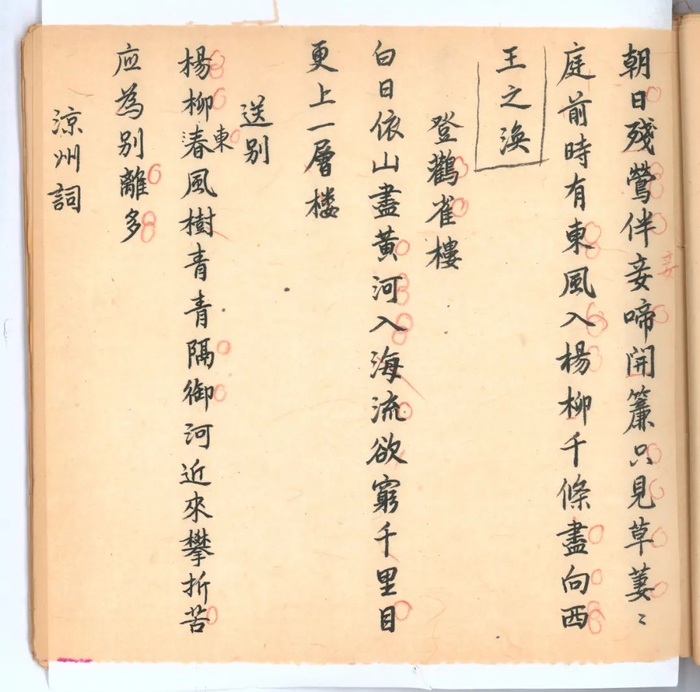 朝日殘鶯伴妾啼開簾只見草萋〻
妾
庭前時有東風入楊柳千條盡向西
王之渙
登鸛雀樓
白日依山盡黃河入海流欲窮千里目
更上一層楼
送別
楊柳春風樹青青隔御河近來攀折苦
東
应為別離多
涼州詞